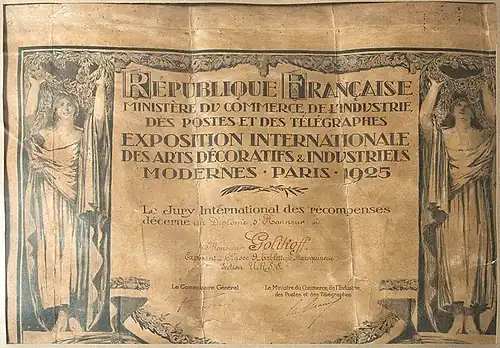 RÉPUBLIQUE FRANÇAISE
MINISTÈRE DU COMMERCE, DE L'INDUSTRIE,
DES POSTES ET DES TÉLÉGRAPHES
EXPOSITION INTERNATIONALE
DES ARTS DÉCORATIFS & INDUSTRIELS
MODERNES · PARIS · 1925
Le Jury International des récompenses
décerne un Diplôme d'Honneur à
Monsieur Golikoff
Exposant Classe 9 Tabletterie Maroquinerie
Section U.R.S.S.
Le Commissaire Général
Le Ministre du Commerce, de l'Industrie,
des Postes et des Télégraphes